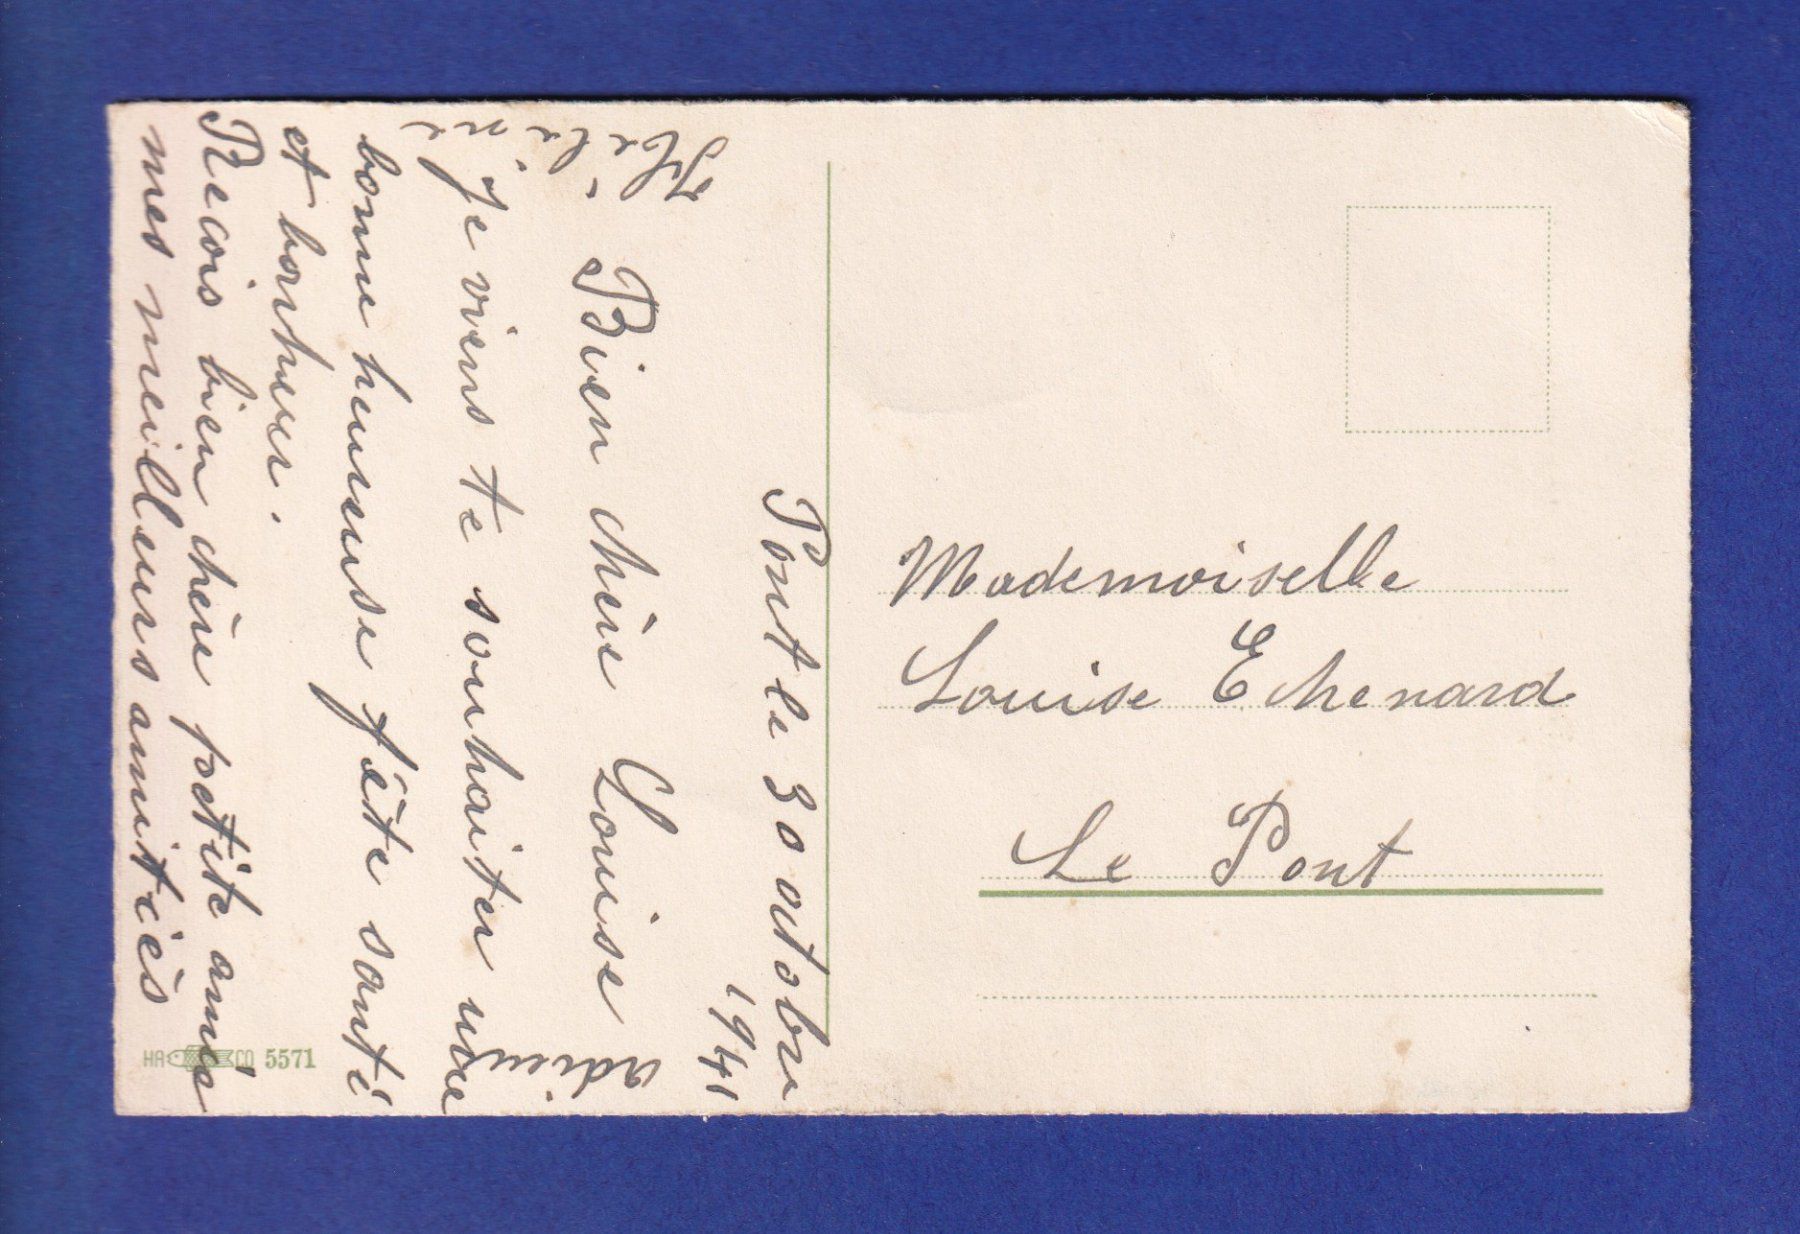 Pont le 30 octobre
1941
Bien chère Louise
Je viens te souhaiter une
bonne heureuse fête santé
et bonheur.
Recois bien chère pettite amie
mes meilleurs amitiès
adieu
Hélène
Mademoiselle
Louise Echenard
Le Pont
HA CO 5571